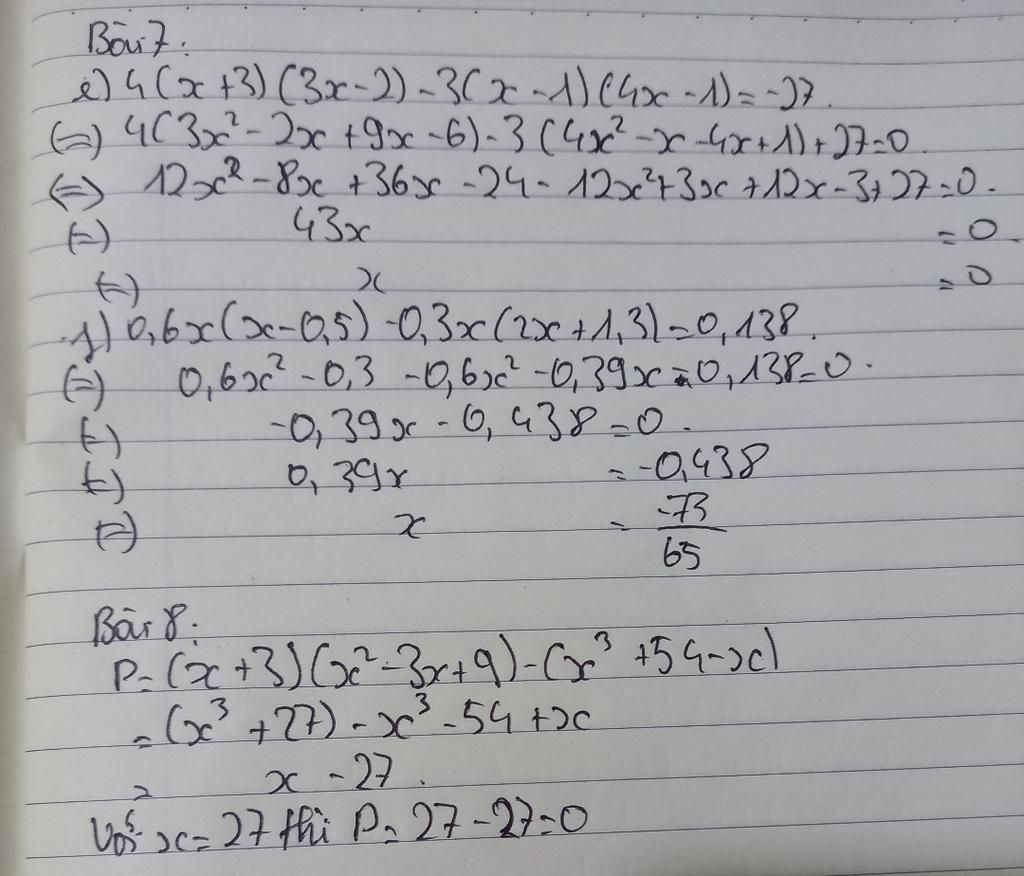 Bài 7:
e) 4(x+3)(3x-2)-3(x-1)(4x-1)=-27.
(=) 4(3x²-2x+9x-6)-3(4x²-x-4x+1)+27=0.
(=) 12x²-8x+36x-24-12x²+3x+12x-3+27=0.
(=) 43x =0
(=) x =0
f) 0,6x(x-0,5)-0,3x(2x+1,3)=0,138.
(=) 0,6x²-0,3-0,6x²-0,39x-0,138=0.
(=) -0,39x-0,438=0.
(=) 0,39x =-0,438
(=) x = -73/65
Bài 8:
P=(x+3)(x²-3x+9)-(x³+54-x)
=(x³+27)-x³-54+x
= x-27.
Với x=27 thì P=27-27=0